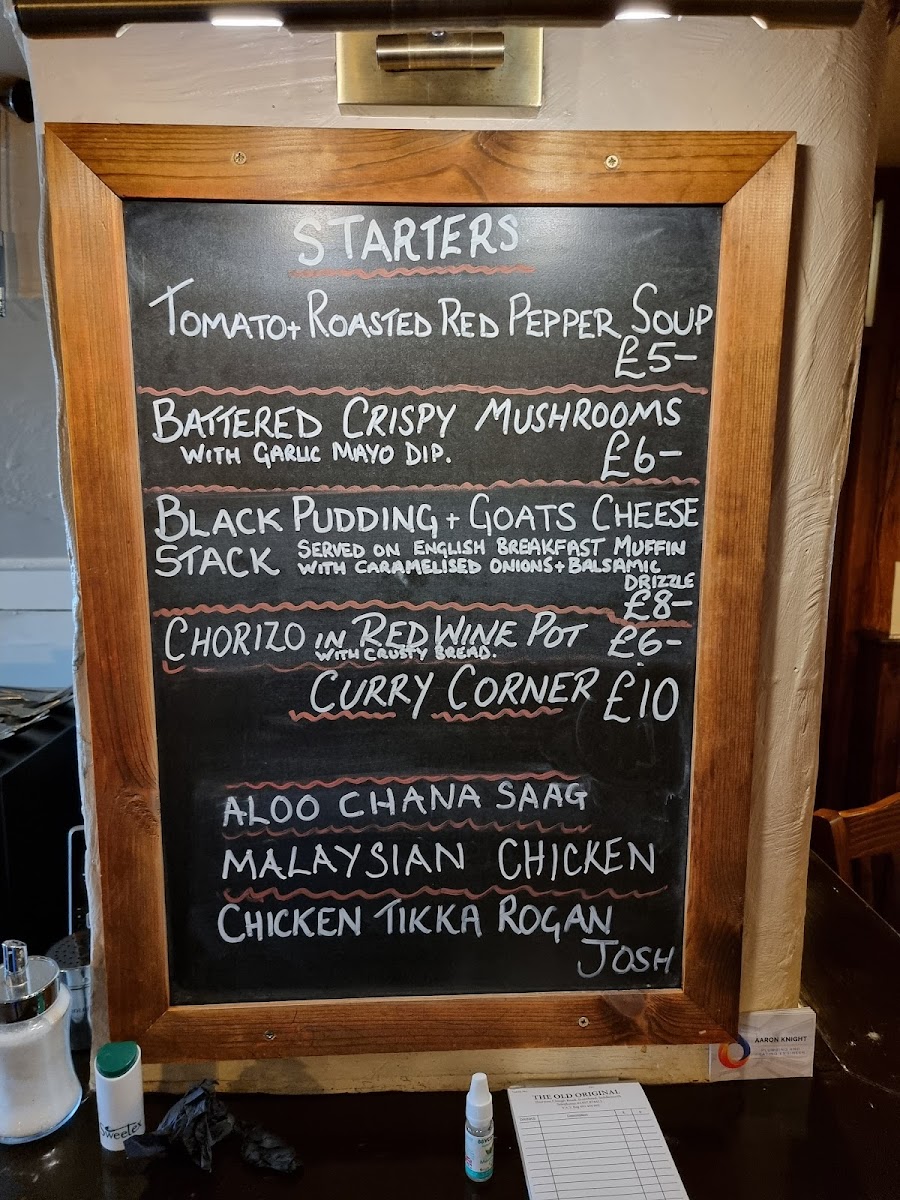 STARTERS
TOMATO + ROASTED RED PEPPER SOUP
£5-
BATTERED CRISPY MUSHROOMS
WITH GARLIC MAYO DIP.
£6-
BLACK PUDDING + GOATS CHEESE
STACK SERVED ON ENGLISH BREAKFAST MUFFIN
WITH CARAMELISED ONIONS + BALSAMIC
DRIZZLE
£8-
CHORIZO IN RED WINE POT £6-
WITH CRUSTY BREAD.
CURRY CORNER £10
ALOO CHANA SAAG
MALAYSIAN CHICKEN
CHICKEN TIKKA ROGAN
JOSH
AARON KNIGHT
Sweetex
THE OLD ORIGINAL